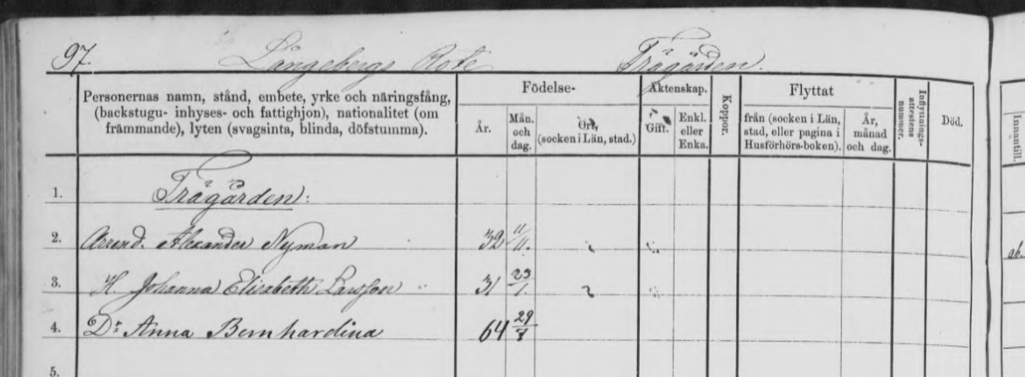 97. Långebergs Rote Trägården.
Personernas namn, stånd, embete, yrke och näringsfång, (backstugu- inhyses- och fattighjon), nationalitet (om främmande), lyten (svagsinta, blinda, döfstumma).
Födelse-
År.
Mån. och dag.
Ort, (socken i Län, stad.)
Äktenskap.
Gift.
Enkl. eller Enka.
Koppor.
Flyttat
från (socken i Län, stad, eller pagina i Husförhörs-boken).
År, månad och dag.
Inflyttnings-attestens nummer.
Död.
Innantill.
1. Trägården:
2. Arrend. Alexander Nyman 32 11/11.
3. H. Johanna Elisabeth Larsson 31 23/1.
4. Dr Anna Bernhardina 64 29/8
5.
ab.